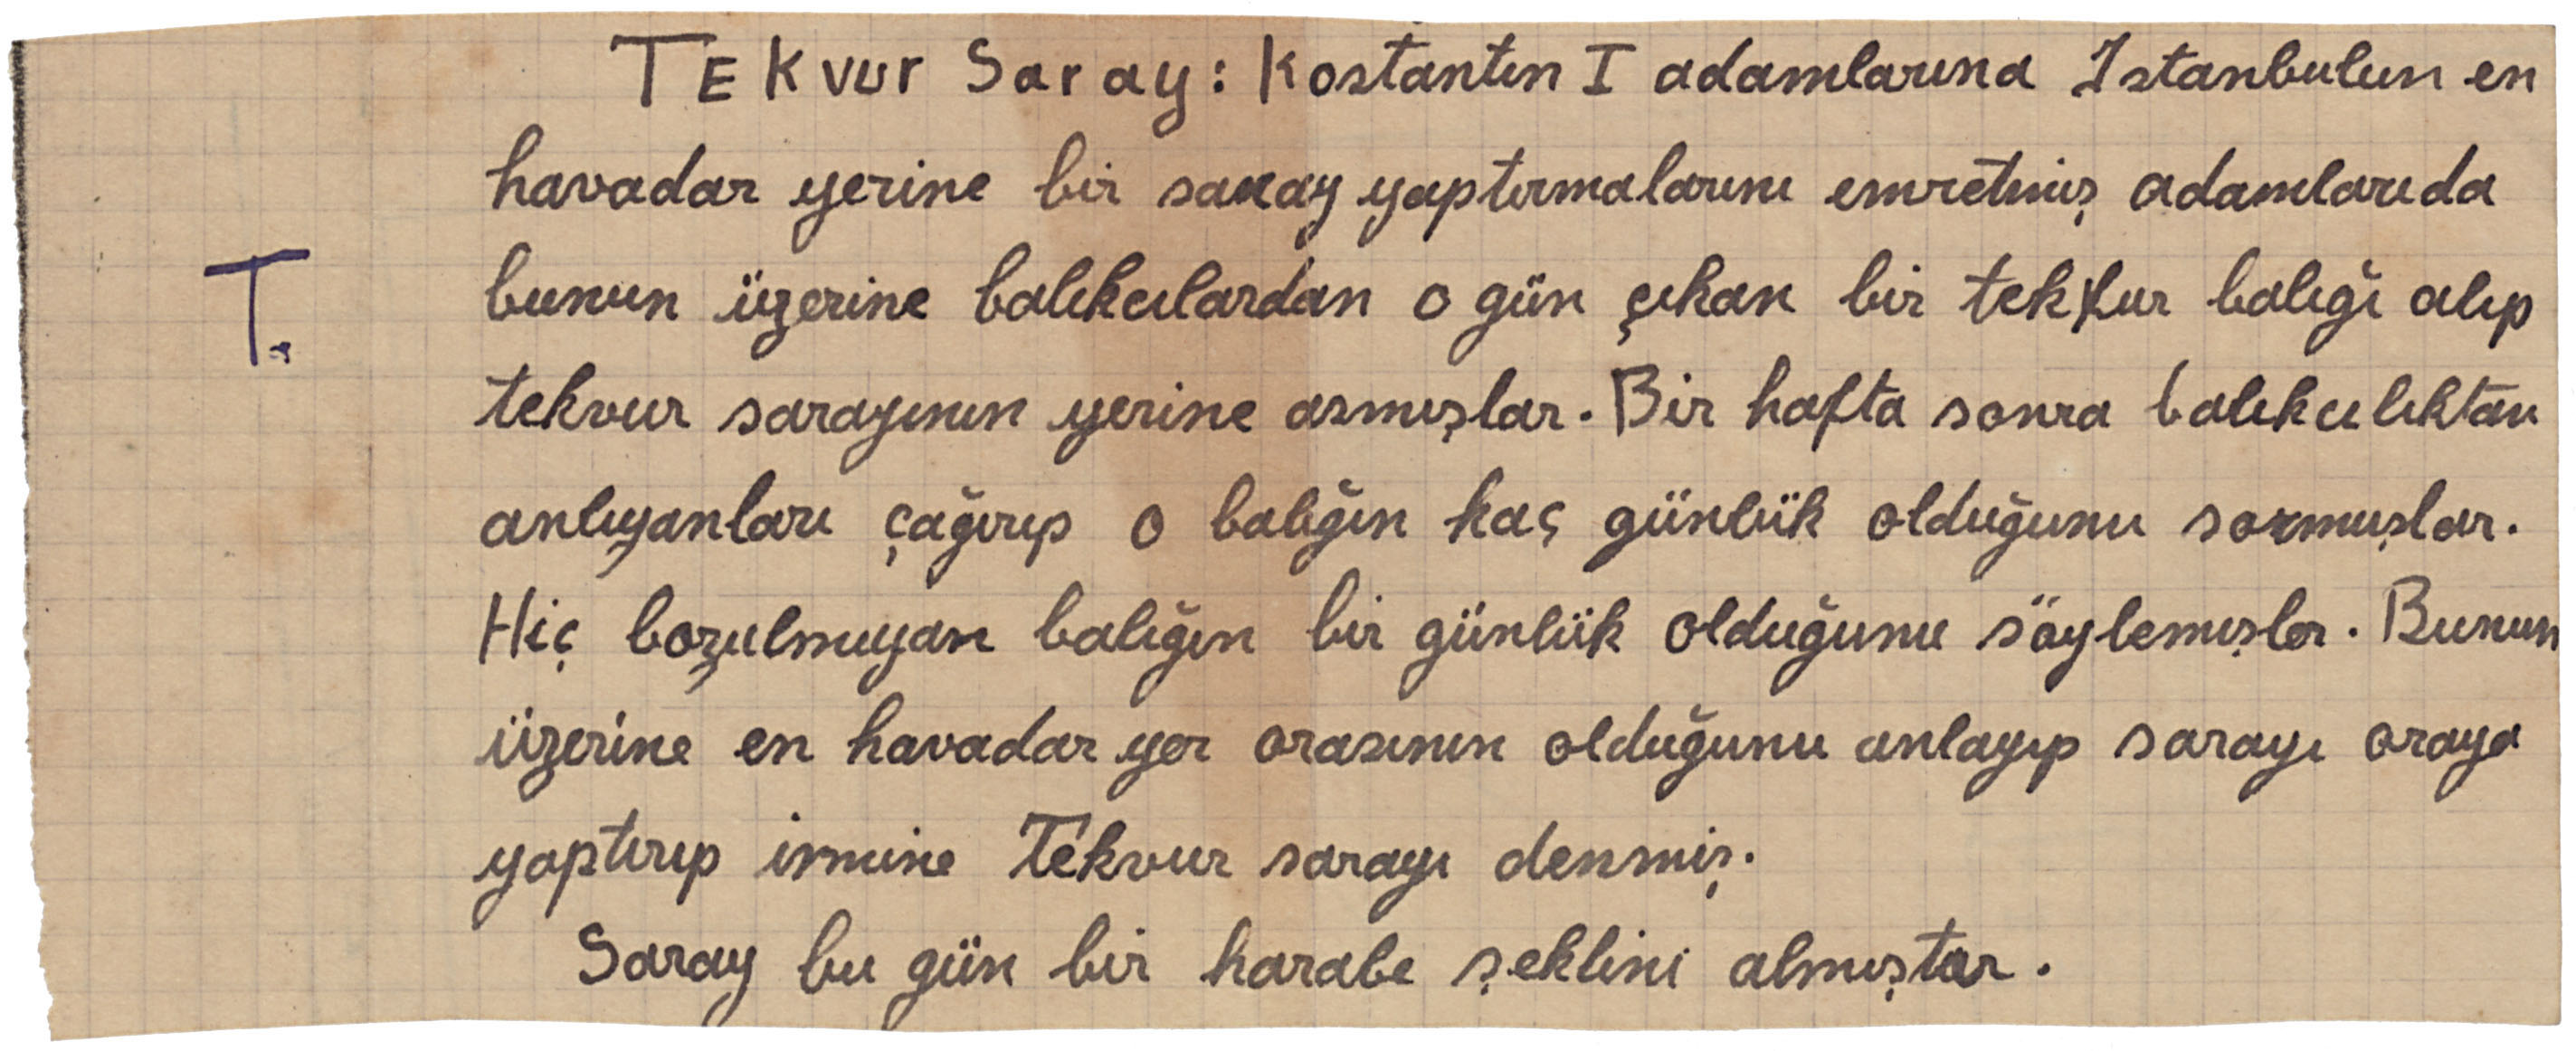 TEKvur Saray: Kostantın I adamlarına Istanbulun en
havadar yerine bir saray yaptırmalarını emretmiş adamlarıda
bunun üzerine balıkcılardan o gün çıkan bir tekfur balığı alıp
T.
tekvur sarayının yerine asmışlar. Bir hafta sonra balıkcılıktan
anlıyanları çağırıp o balığın kaç günlük olduğunu sormuşlar.
Hiç bozulmıyan balığın bir günlük olduğunu söylemışler. Bunun
üzerine en havadar yer orasının olduğunu anlayıp sarayı oraya
yaptırıp ismine Tekvur sarayı denmiş.
Saray bu gün bir harabe şeklini almıştır.